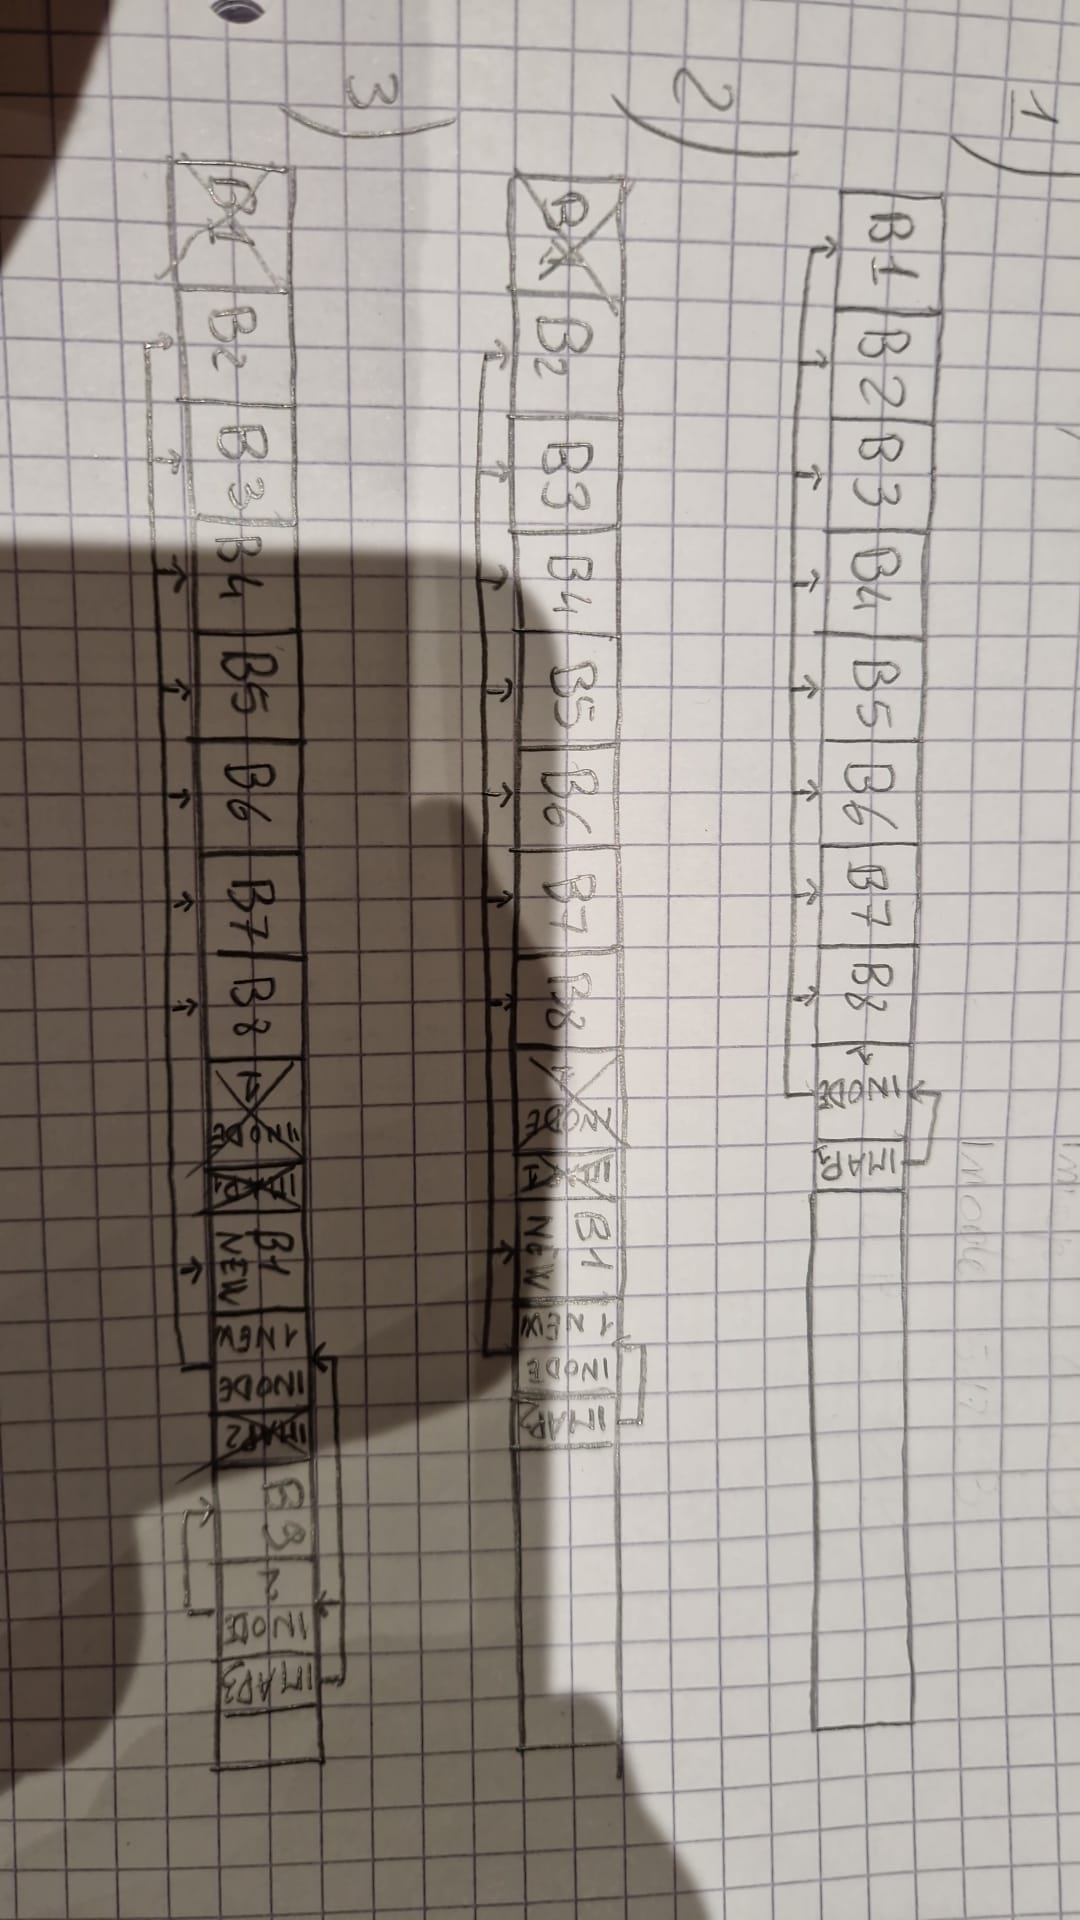 1)
B1 B2 B3 B4 B5 B6 B7 B8 1 INODE IMAP1
2)
B1 B2 B3 B4 B5 B6 B7 B8 1 INODE B1 NEW 1 NEW INODE IMAP
3)
B1 B2 B3 B4 B5 B6 B7 B8 1 INODE B1 NEW 1 NEW INODE B3 INODE IMAP3
Inode